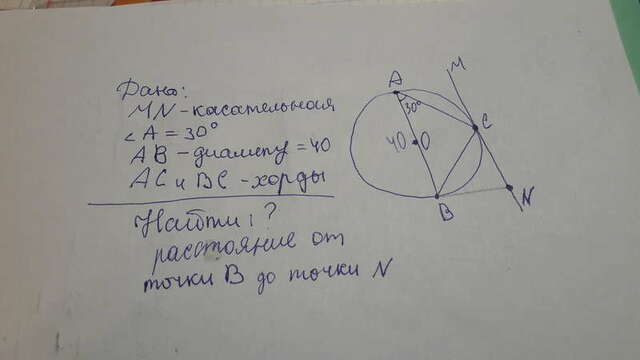 Дано:
MN - касательная
∠A = 30°
AB - диаметр = 40
AC и BC - хорды
Найти: ?
расстояние от
точки B до точки N
A
M
30°
C
40
O
B
N